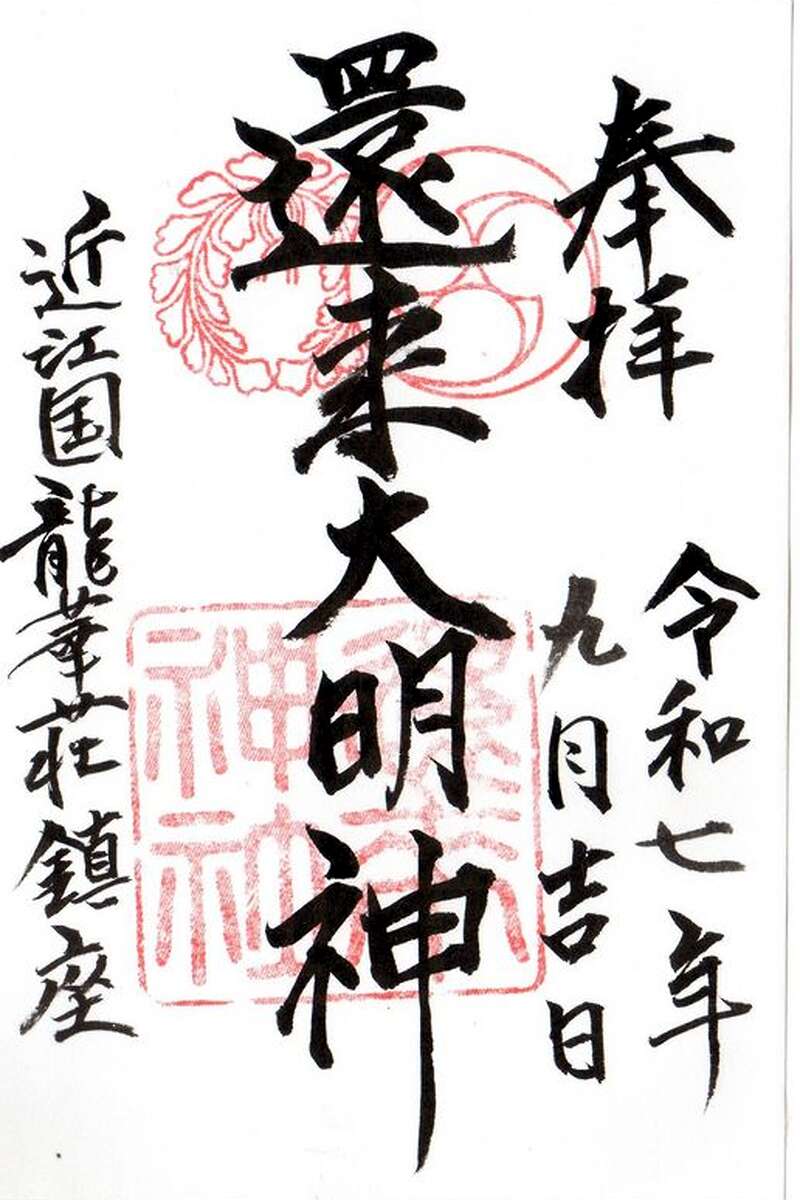 奉拝
令和七年
九月吉日
還来大明神
近江国龍華荘鎮座
還来
神社